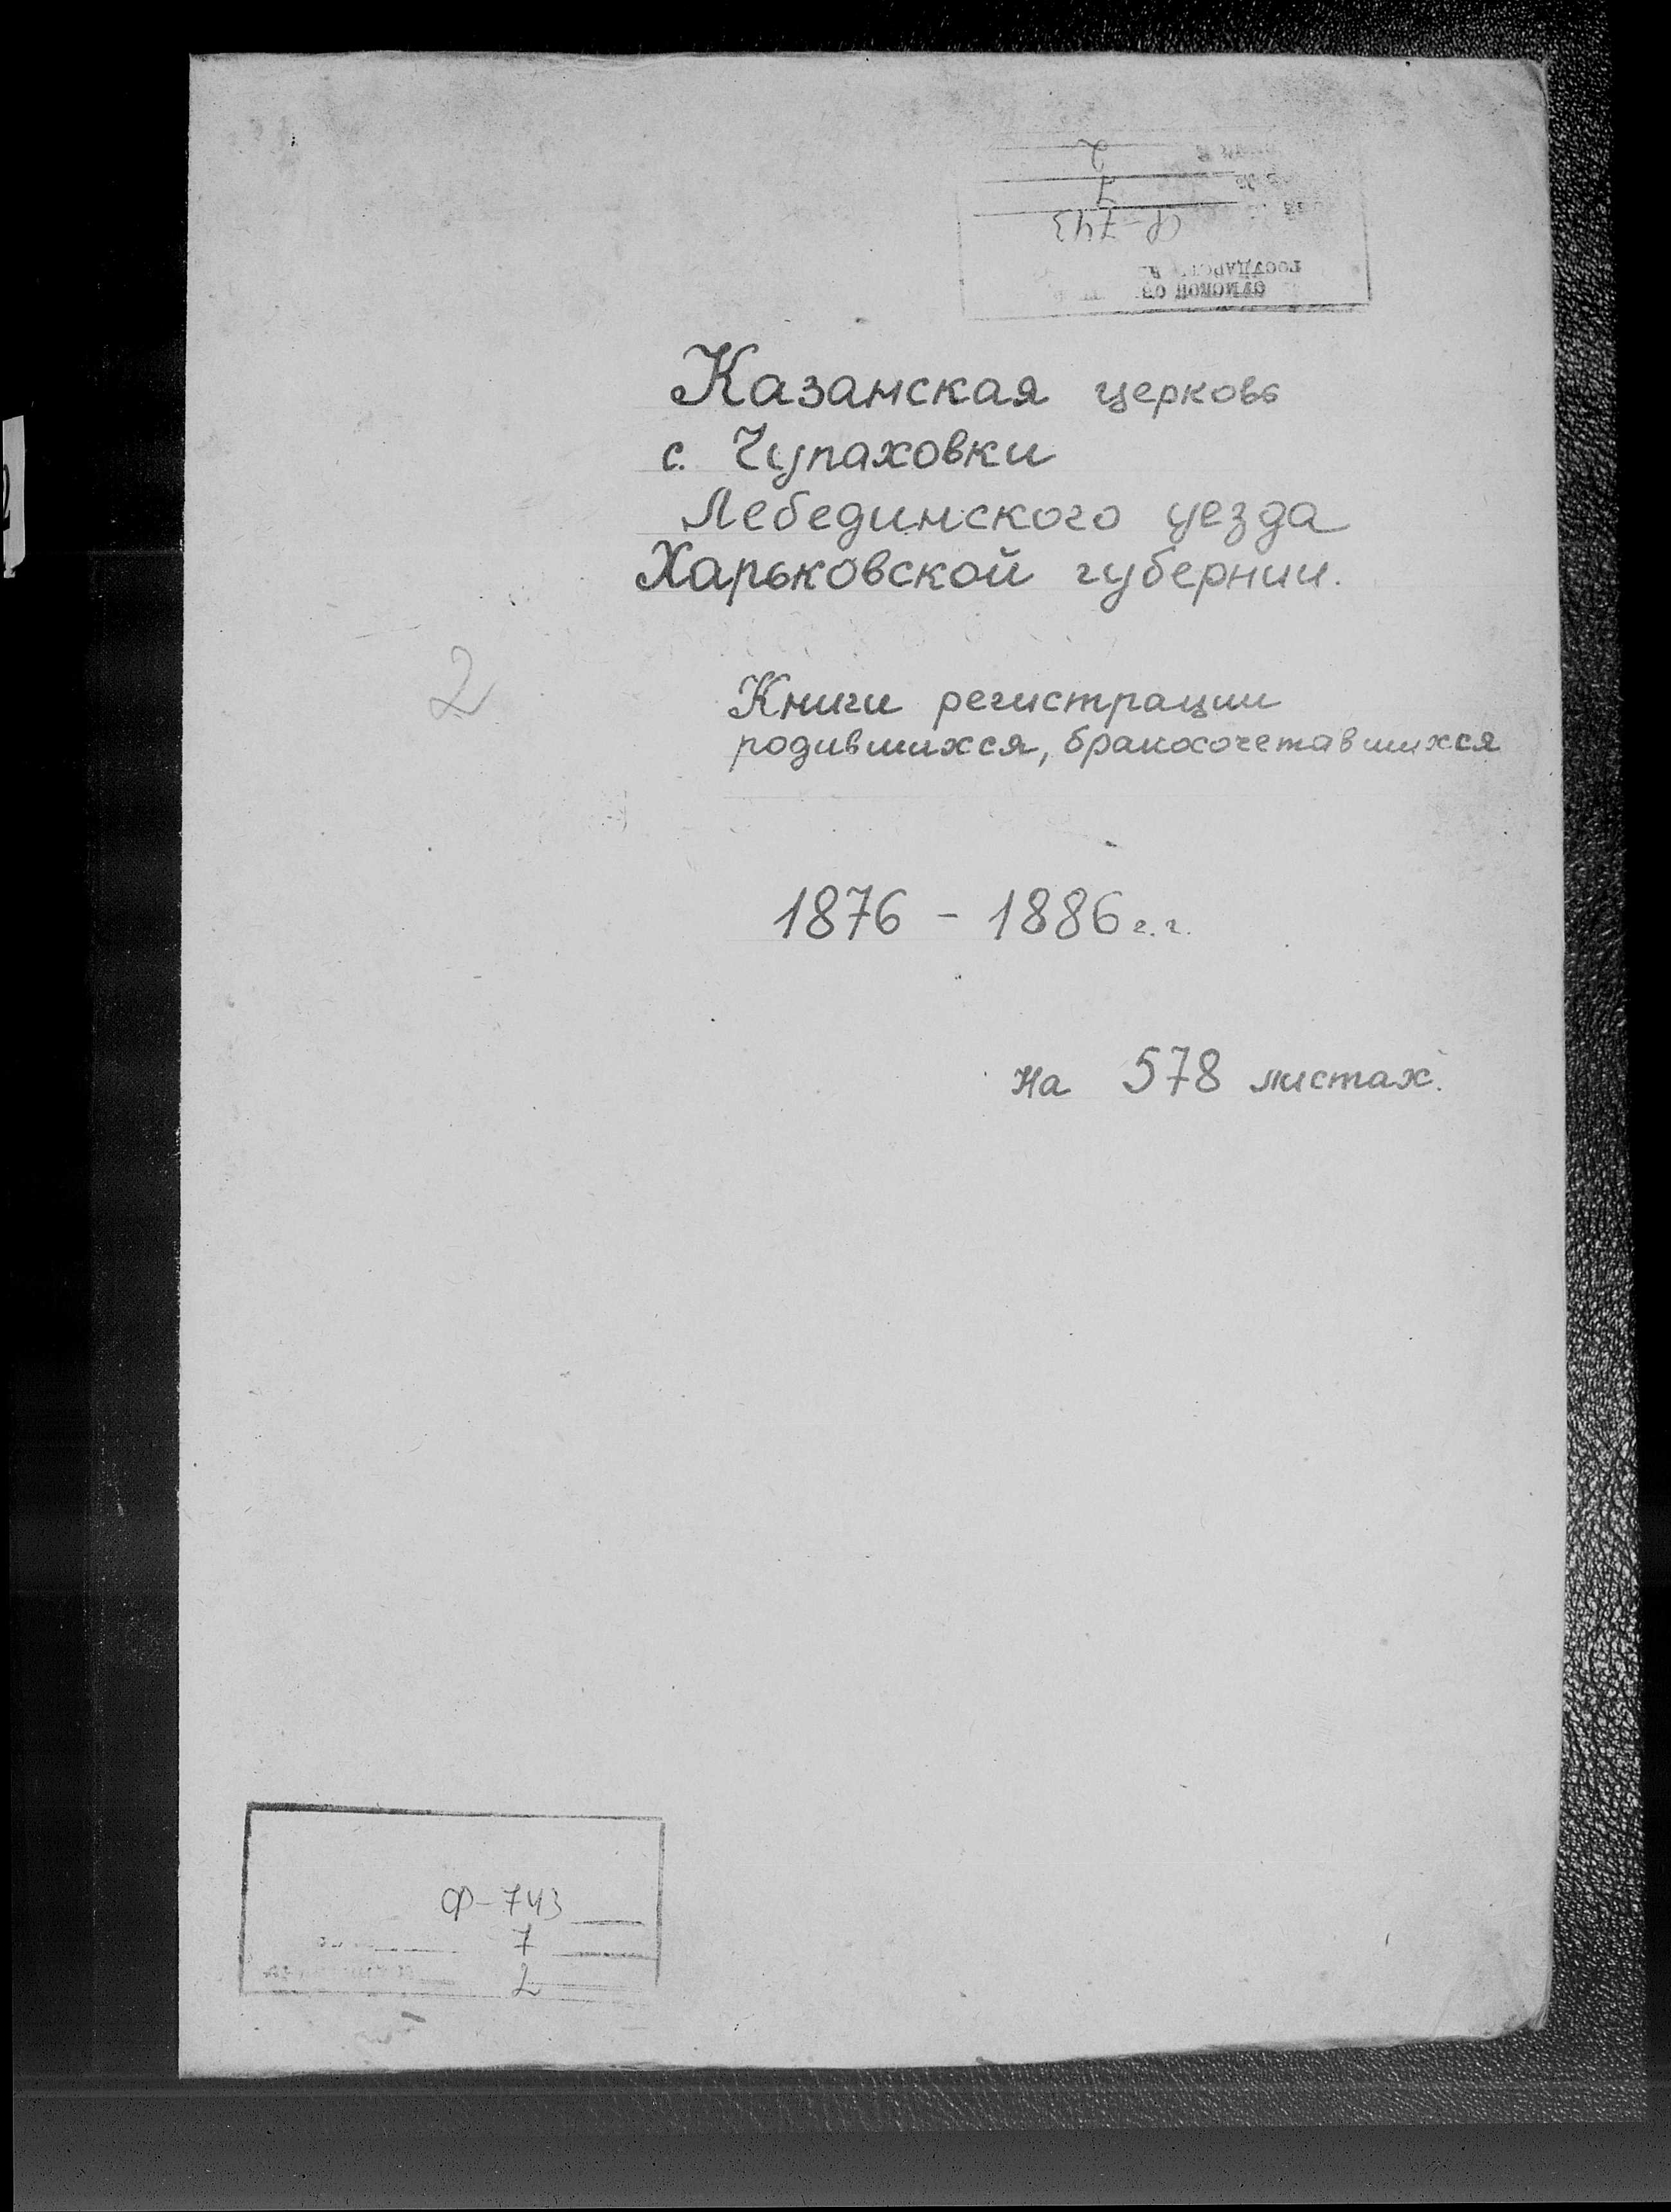 Ф-743
7
2
Казанская церковь
с. Чупаховки
Лебединского уезда
Харьковской губернии.
2
Книги регистрации
родившихся, бракосочетавшихся
1876 - 1886 г.г.
на 578 листах.
Ф-743
7
2